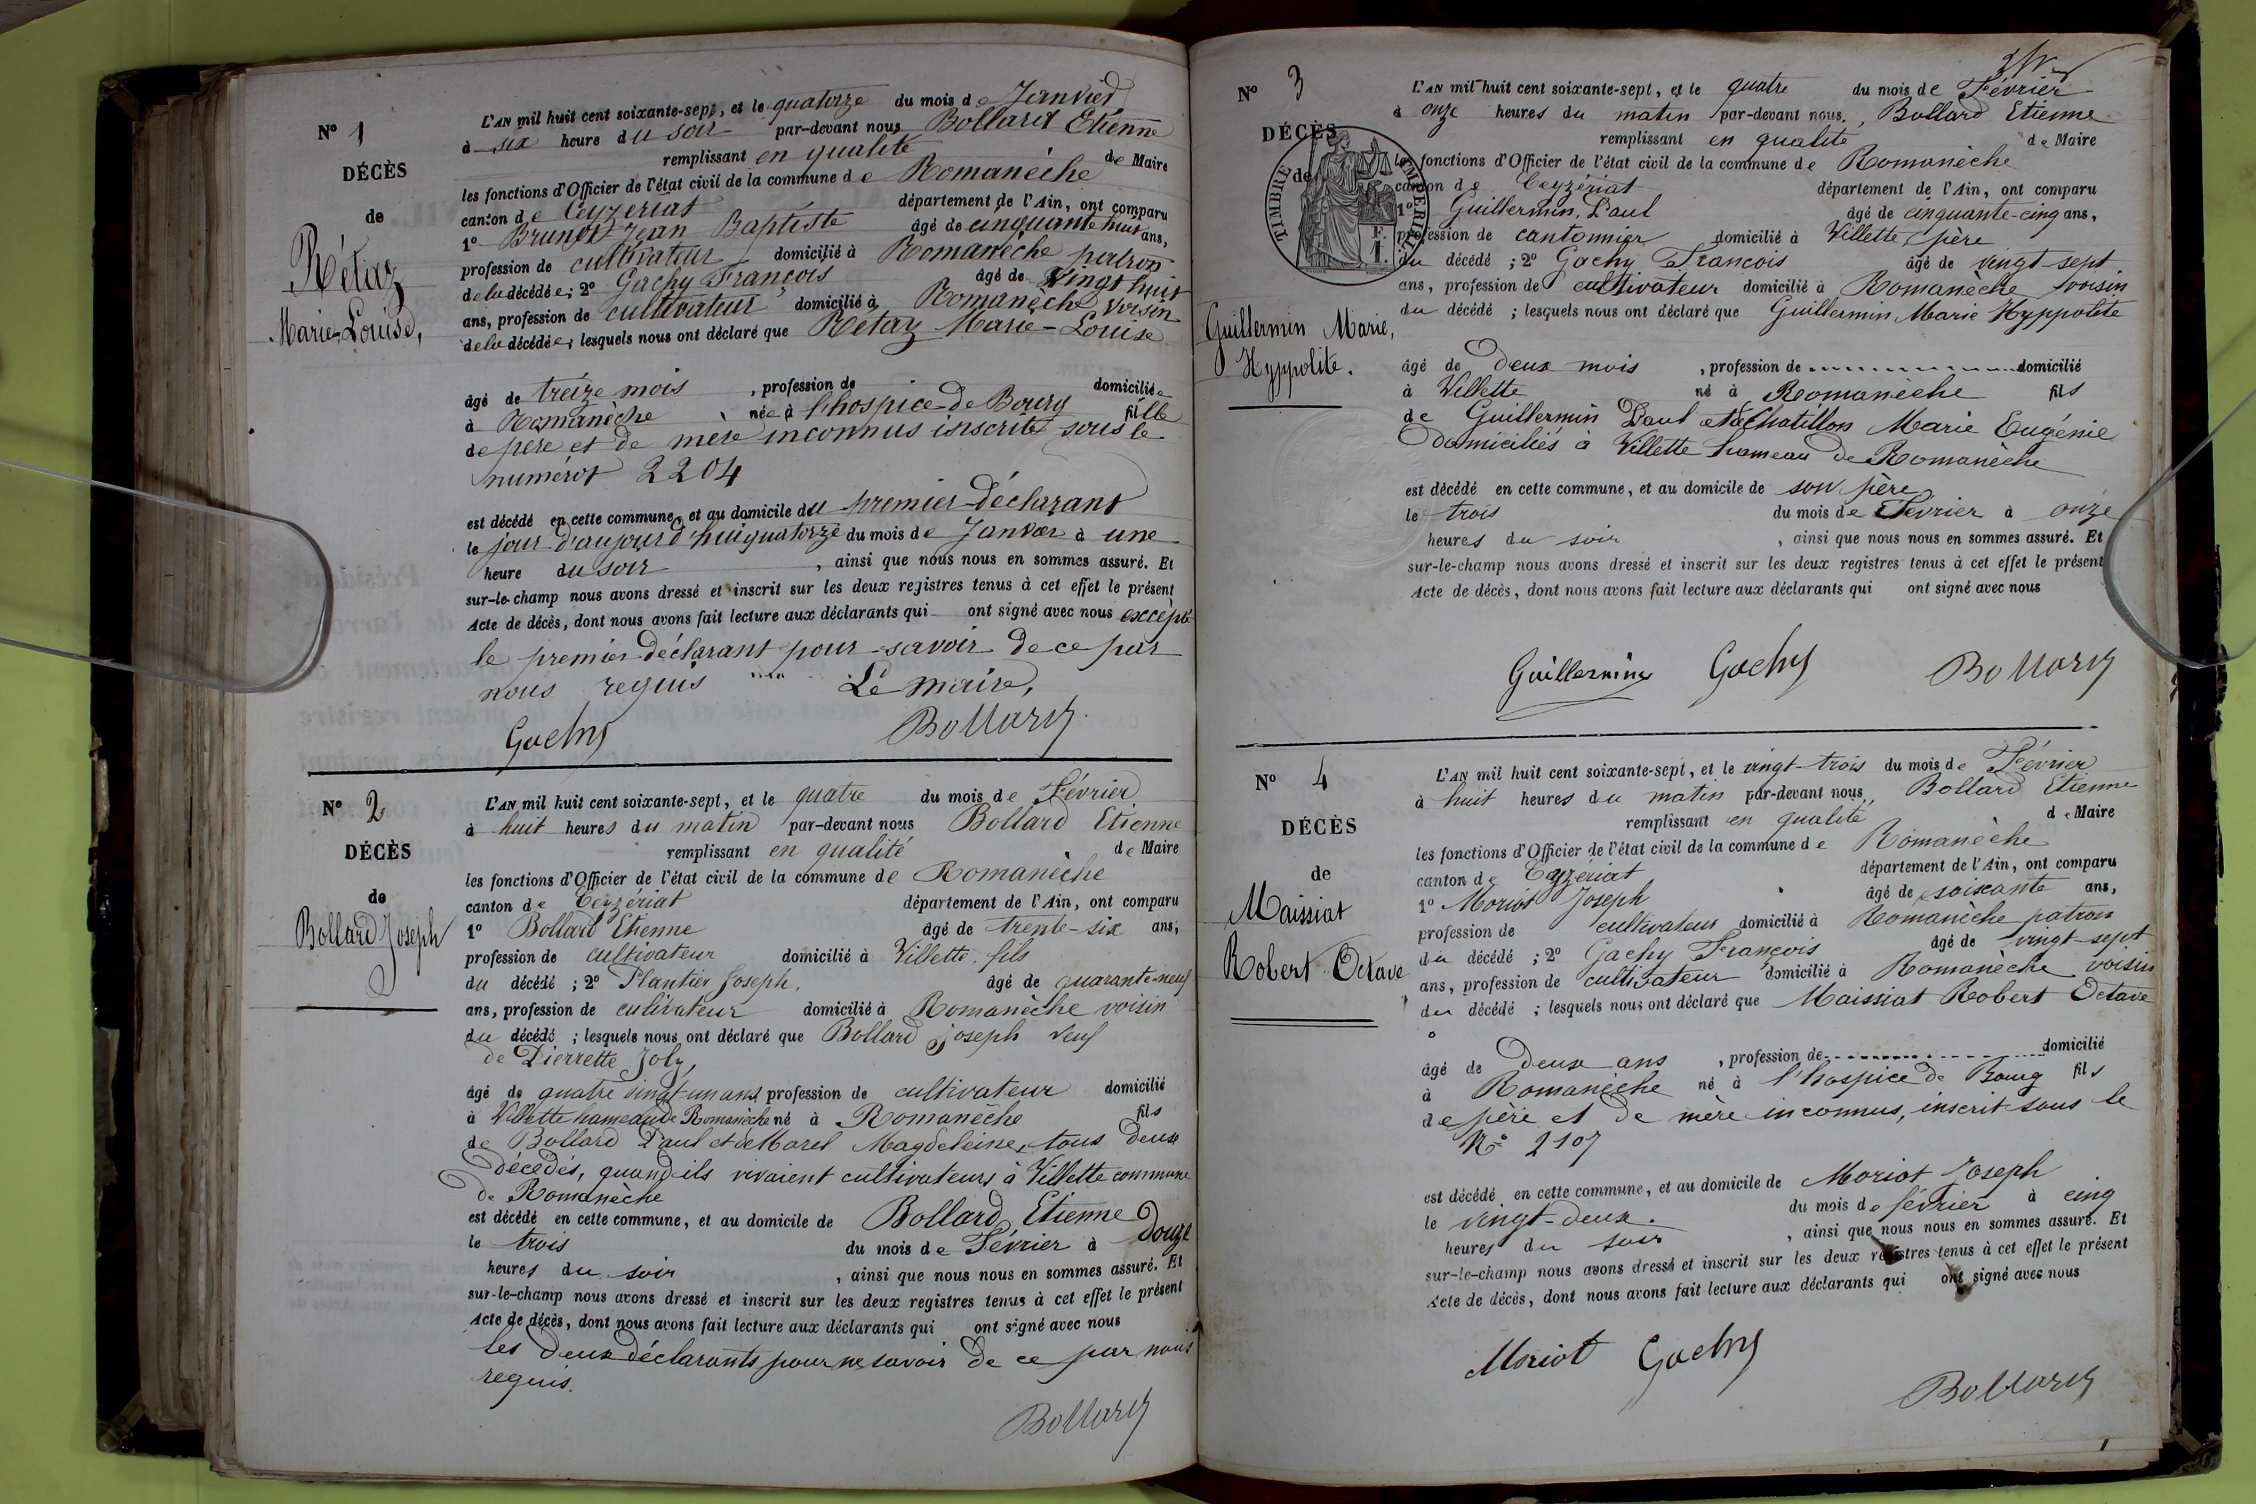 N° 1
DÉCÈS
de
Rétaz
Marie-Louise,
L'AN mil huit cent soixante-sept, et le quatorze du mois de Janvier
à six heure du soir par-devant nous Bollard Etienne
remplissant en qualité de Maire
les fonctions d'Officier de l'état civil de la commune de Romanèche
canton de Ceyzériat département de l'Ain, ont comparu
1° Jean Baptiste âgé de cinquante huit ans,
profession de cultivateur domicilié à Romanèche patron
de la décédée; 2° Gachy François âgé de vingt huit
ans, profession de cultivateur domicilié à Romanèche voisin
de la décédée, lesquels nous ont déclaré que Rétaz Marie-Louise
âgé de treize mois , profession de domiciliée
à Romanèche , née à l'hospice de Bourg fille
de père et de mère inconnus inscrite sous le
numérot 2204
est décédé en cette commune, et au domicile du premier déclarant
le jour d'aujourd'hui quatorze du mois de Janvier à une
heure du soir , ainsi que nous nous en sommes assuré. Et
sur-le-champ nous avons dressé et inscrit sur les deux registres tenus à cet effet le présent
Acte de décès, dont nous avons fait lecture aux déclarants qui ont signé avec nous excepté
le premier déclarant pour savoir de ce par
nous requis Le maire,
Gachy Bollard
N° 2
DÉCÈS
de
Bollard Joseph
L'AN mil huit cent soixante-sept, et le quatre du mois de Février
à huit heures du matin par-devant nous Bollard Etienne
remplissant en qualité de Maire
les fonctions d'Officier de l'état civil de la commune de Romanèche
canton de Ceyzériat département de l'Ain, ont comparu
1° Bollard Etienne âgé de trente-six ans,
profession de cultivateur domicilié à Villette fils
du décédé ; 2° Plantier Joseph, âgé de quarante-neuf
ans, profession de cultivateur domicilié à Romanèche voisin
du décédé ; lesquels nous ont déclaré que Bollard Joseph veuf
de Pierrette Joly,
âgé de quatre vingt-un ans profession de cultivateur domicilié
à Villette hameau de Romanèche né à Romanèche fils
de Bollard Paul et de Morel Magdeleine, tous deux
décédés, quand ils vivaient cultivateurs à Villette commune
de Romanèche
est décédé en cette commune, et au domicile de Bollard Etienne
le trois du mois de Février à douze
heures du soir , ainsi que nous nous en sommes assuré. Et
sur-le-champ nous avons dressé et inscrit sur les deux registres tenus à cet effet le présent
Acte de décès, dont nous avons fait lecture aux déclarants qui ont signé avec nous
les deux déclarants pour ne savoir de ce par nous
requis.
Bollard
N° 3
DÉCÈS
de
TIMBRE IMPÉRIAL
F.
1.
Guillermin Marie,
Hyppolite.
L'AN mil huit cent soixante-sept, et le quatre du mois de Février
à onze heures du matin par-devant nous, Bollard Etienne
remplissant en qualité de Maire
les fonctions d'Officier de l'état civil de la commune de Romanèche
canton de Ceyzériat département de l'Ain, ont comparu
1° Guillermin, Paul âgé de cinquante-cinq ans,
profession de cantonnier domicilié à Villette, père
du décédé ; 2° Gachy François âgé de vingt-sept
ans, profession de cultivateur domicilié à Romanèche voisin
du décédé ; lesquels nous ont déclaré que Guillermin Marie Hyppolite
âgé de deux mois , profession de domicilié
à Villette né à Romanèche fils
de Guillermin Paul et de Chatillon Marie Eugénie
domiciliés à Villette hameau de Romanèche
est décédé en cette commune, et au domicile de son père
le trois du mois de Février à onze
heures du soir , ainsi que nous nous en sommes assuré. Et
sur-le-champ nous avons dressé et inscrit sur les deux registres tenus à cet effet le présent
Acte de décès, dont nous avons fait lecture aux déclarants qui ont signé avec nous
Guillermin Gachy Bollard
N° 4
DÉCÈS
de
Maissiat
Robert Octave
L'AN mil huit cent soixante-sept, et le vingt-trois du mois de Février
à huit heures du matin par-devant nous, Bollard Etienne
remplissant en qualité de Maire
les fonctions d'Officier de l'état civil de la commune de Romanèche
canton de Ceyzériat département de l'Ain, ont comparu
1° Moriot Joseph âgé de soixante ans,
profession de cultivateur domicilié à Romanèche patron
du décédé ; 2° Gachy François âgé de vingt-sept
ans, profession de cultivateur domicilié à Romanèche voisin
du décédé ; lesquels nous ont déclaré que Maissiat Robert Octave
âgé de deux ans , profession de domicilié
à Romanèche né à l'hospice de Bourg fils
de père et de mère inconnus, inscrit sous le
N° 2107
est décédé en cette commune, et au domicile de Moriot Joseph
le vingt-deux. du mois de février à cinq
heures du soir , ainsi que nous nous en sommes assuré. Et
sur-le-champ nous avons dressé et inscrit sur les deux registres tenus à cet effet le présent
Acte de décès, dont nous avons fait lecture aux déclarants qui ont signé avec nous
Moriot Gachy
Bollard